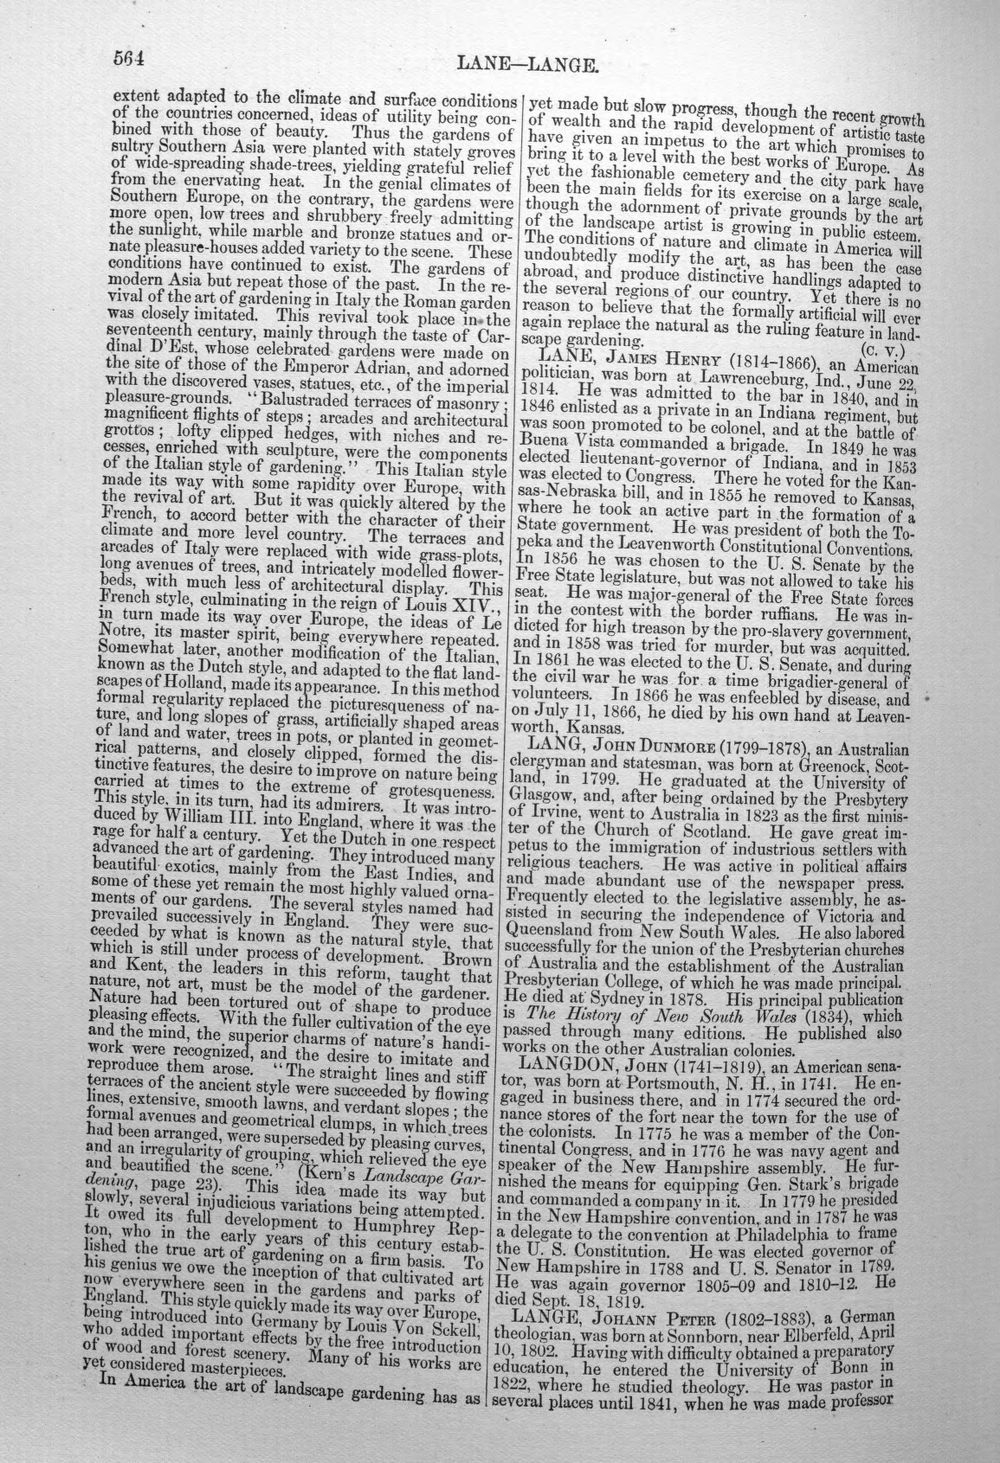 564
LANE—LANGE.
extent adapted to the climate and surface conditions
of the countries concerned, ideas of utility being con-
bined with those of beauty. Thus the gardens of
sultry Southern Asia were planted with stately groves
of wide-spreading shade-trees, yielding grateful relief
from the enervating heat. In the genial climates of
Southern Europe, on the contrary, the gardens were
more open, low trees and shrubbery freely admitting
the sunlight, while marble and bronze statues and or-
nate pleasure-houses added variety to the scene. These
conditions have continued to exist. The gardens of
modern Asia but repeat those of the past. In the re-
vival of the art of gardening in Italy the Roman garden
was closely imitated. This revival took place in the
seventeenth century, mainly through the taste of Car-
dinal D'Est, whose celebrated gardens were made on
the site of those of the Emperor Adrian, and adorned
with the discovered vases, statues, etc., of the imperial
pleasure-grounds. "Balustraded terraces of masonry;
magnificent flights of steps; arcades and architectural
grottos; lofty clipped hedges, with niches and re-
cesses, enriched with sculpture, were the components
of the Italian style of gardening." This Italian style
made its way with some rapidity over Europe, with
the revival of art. But it was quickly altered by the
French, to accord better with the character of their
climate and more level country. The terraces and
arcades of Italy were replaced with wide grass-plots,
long avenues of trees, and intricately modelled flower-
beds, with much less of architectural display. This
French style, culminating in the reign of Louis XIV.,
in turn made its way over Europe, the ideas of Le
Notre, its master spirit, being everywhere repeated.
Somewhat later, another modification of the Italian,
known as the Dutch style, and adapted to the flat land-
scapes of Holland, made its appearance. In this method
formal regularity replaced the picturesqueness of na-
ture, and long slopes of grass, artificially shaped areas
of land and water, trees in pots, or planted in geomet-
rical patterns, and closely clipped, formed the dis-
tinctive features, the desire to improve on nature being
carried at times to the extreme of grotesqueness.
This style, in its turn, had its admirers. It was intro-
duced by William III. into England, where it was the
rage for half a century. Yet the Dutch in one respect
advanced the art of gardening. They introduced many
beautiful exotics, mainly from the East Indies, and
some of these yet remain the most highly valued orna-
ments of our gardens. The several styles named had
prevailed successively in England. They were suc-
ceeded by what is known as the natural style, that
which is still under process of development. Brown
and Kent, the leaders in this reform, taught that
nature, not art, must be the model of the gardener.
Nature had been tortured out of shape to produce
pleasing effects. With the fuller cultivation of the eye
and the mind, the superior charms of nature's handi-
work were recognized, and the desire to imitate and
reproduce them arose. "The straight lines and stiff
terraces of the ancient style were succeeded by flowing
lines, extensive, smooth lawns, and verdant slopes; the
formal avenues and geometrical clumps, in which trees
had been arranged, were superseded by pleasing curves,
and an irregularity of grouping, which relieved the eye
and beautified the scene." (Kern's Landscape Gar-
dening, page 23). This idea made its way but
slowly, several injudicious variations being attempted.
It owed its full development to Humphrey Rep-
ton, who in the early years of this century estab-
lished the true art of gardening on a firm basis. To
his genius we owe the inception of that cultivated art
now everywhere seen in the gardens and parks of
England. This style quickly made its way over Europe,
being introduced into Germany by Louis Von Sckell,
who added important effects by the free introduction
of wood and forest scenery. Many of his works are
yet considered masterpieces.
In America the art of landscape gardening has as
yet made but slow progress, though the recent growth
of wealth and the rapid development of artistic taste
have given an impetus to the art which promises to
bring it to a level with the best works of Europe. As
yet the fashionable cemetery and the city park have
been the main fields for its exercise on a large scale,
though the adornment of private grounds by the art
of the landscape artist is growing in public esteem.
The conditions of nature and climate in America will
undoubtedly modify the art, as has been the case
abroad, and produce distinctive handlings adapted to
the several regions of our country. Yet there is no
reason to believe that the formally artificial will ever
again replace the natural as the ruling feature in land-
scape gardening. (C. V.)
LANE, JAMES HENRY (1814–1866), an American
politician, was born at Lawrenceburg, Ind., June 22,
1814. He was admitted to the bar in 1840, and in
1846 enlisted as a private in an Indiana regiment, but
was soon promoted to be colonel, and at the battle of
Buena Vista commanded a brigade. In 1849 he was
elected lieutenant-governor of Indiana, and in 1853
was elected to Congress. There he voted for the Kan-
sas-Nebraska bill, and in 1855 he removed to Kansas,
where he took an active part in the formation of a
State government. He was president of both the To-
peka and the Leavenworth Constitutional Conventions.
In 1856 he was chosen to the U. S. Senate by the
Free State legislature, but was not allowed to take his
seat. He was major-general of the Free State forces
in the contest with the border ruffians. He was in-
dicted for high treason by the pro-slavery government,
and in 1858 was tried for murder, but was acquitted.
In 1861 he was elected to the U. S. Senate, and during
the civil war he was for a time brigadier-general of
volunteers. In 1866 he was enfeebled by disease, and
on July 11, 1866, he died by his own hand at Leaven-
worth, Kansas.
LANG, JOHN DUNMORE (1799–1878), an Australian
clergyman and statesman, was born at Greenock, Scot-
land, in 1799. He graduated at the University of
Glasgow, and, after being ordained by the Presbytery
of Irvine, went to Australia in 1823 as the first minis-
ter of the Church of Scotland. He gave great im-
petus to the immigration of industrious settlers with
religious teachers. He was active in political affairs
and made abundant use of the newspaper press.
Frequently elected to the legislative assembly, he as-
sisted in securing the independence of Victoria and
Queensland from New South Wales. He also labored
successfully for the union of the Presbyterian churches
of Australia and the establishment of the Australian
Presbyterian College, of which he was made principal.
He died at Sydney in 1878. His principal publication
is The History of New South Wales (1834), which
passed through many editions. He published also
works on the other Australian colonies.
LANGDON, JOHN (1741–1819), an American sena-
tor, was born at Portsmouth, N. H., in 1741. He en-
gaged in business there, and in 1774 secured the ord-
nance stores of the fort near the town for the use of
the colonists. In 1775 he was a member of the Con-
tinental Congress, and in 1776 he was navy agent and
speaker of the New Hampshire assembly. He fur-
nished the means for equipping Gen. Stark's brigade
and commanded a company in it. In 1779 he presided
in the New Hampshire convention, and in 1787 he was
a delegate to the convention at Philadelphia to frame
the U. S. Constitution. He was elected governor of
New Hampshire in 1788 and U. S. Senator in 1789.
He was again governor 1805–09 and 1810–12. He
died Sept. 18, 1819.
LANGE, JOHANN PETER (1802–1883), a German
theologian, was born at Sonnborn, near Elberfeld, April
10, 1802. Having with difficulty obtained a preparatory
education, he entered the University of Bonn in
1822, where he studied theology. He was pastor in
several places until 1841, when he was made professor